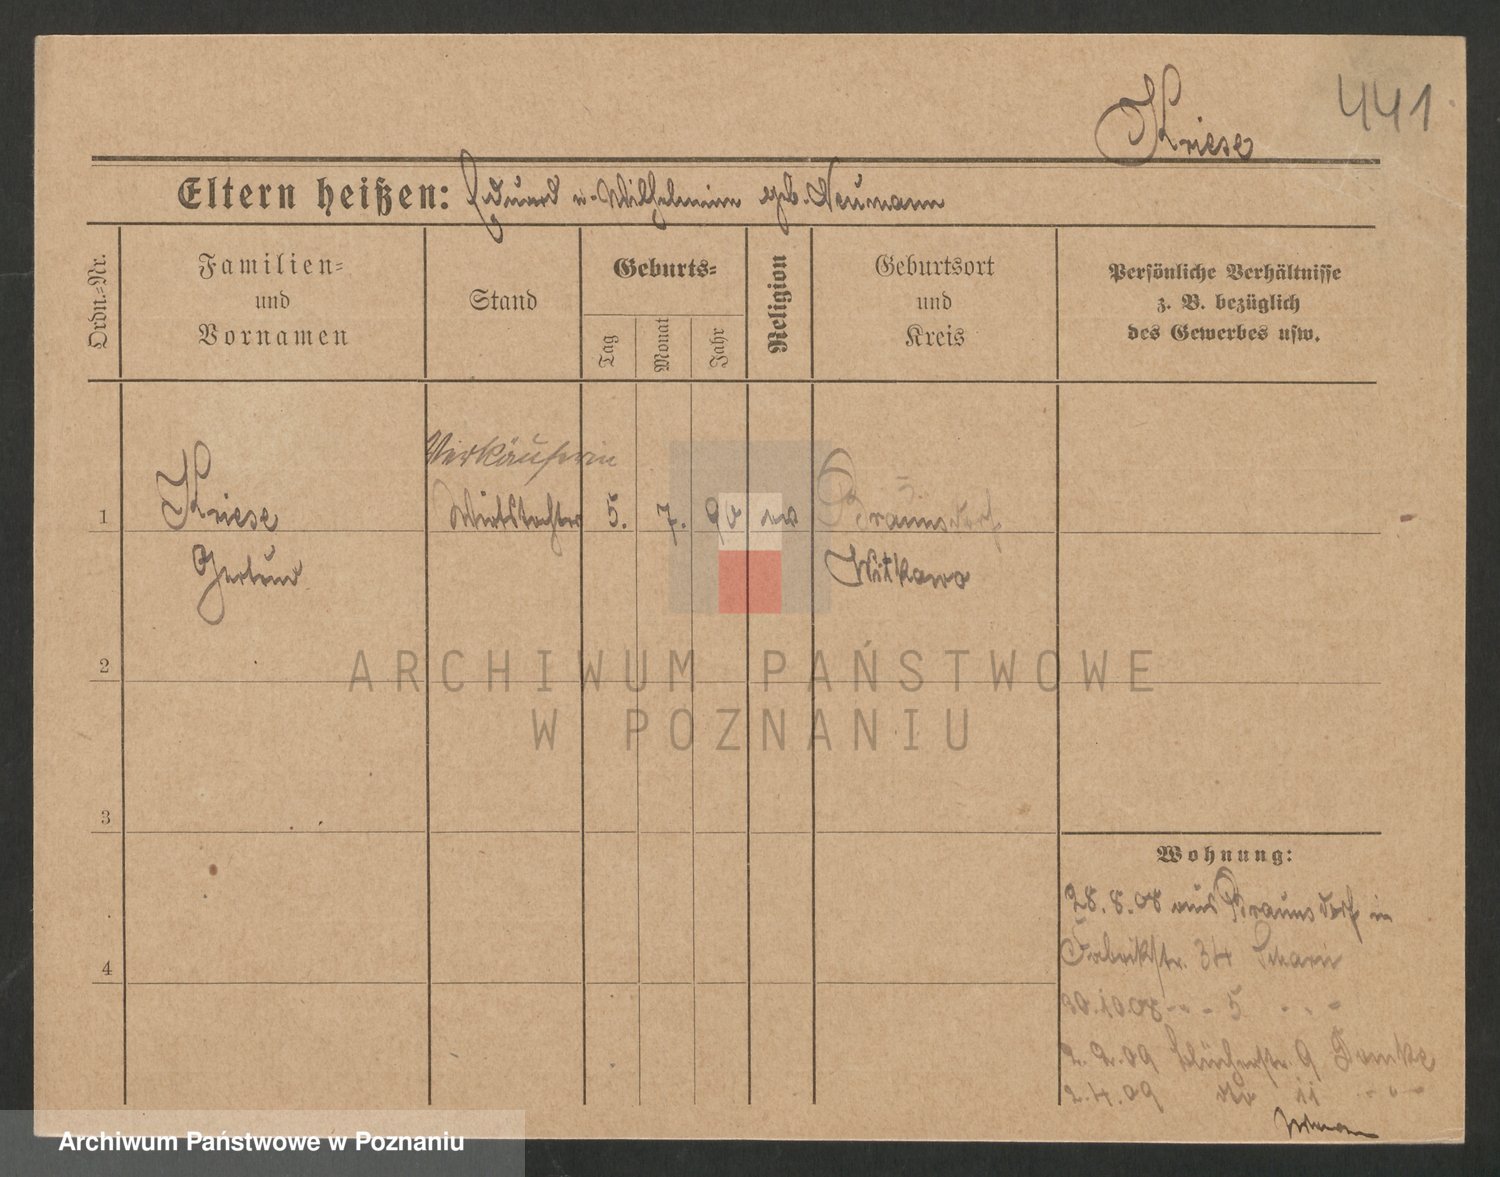 441
Kriese
Eltern heißen: Eduard u. Wilhelmine geb. Neumann
Ordn.-Nr.
Familien-
und
Vornamen
Stand
Geburts-
Tag
Monat
Jahr
Religion
Geburtsort
und
Kreis
Persönliche Verhältnisse
z. B. bezüglich
des Gewerbes usw.
Verkäuferin
1 Kriese Wirtstochter 5. 7. 90 ev Braunsdorf
Gertrud Witkowo
2
3
4
Wohnung:
28.8.08 aus Braunsdorf in
Fabrikstr. 34
30.10.08 - - - 5 - - -
2.2.09 Blücherstr. 9
2.4.09 do 11 - - -
ARCHIWUM PAŃSTWOWE
W POZNANIU
Archiwum Państwowe w Poznaniu